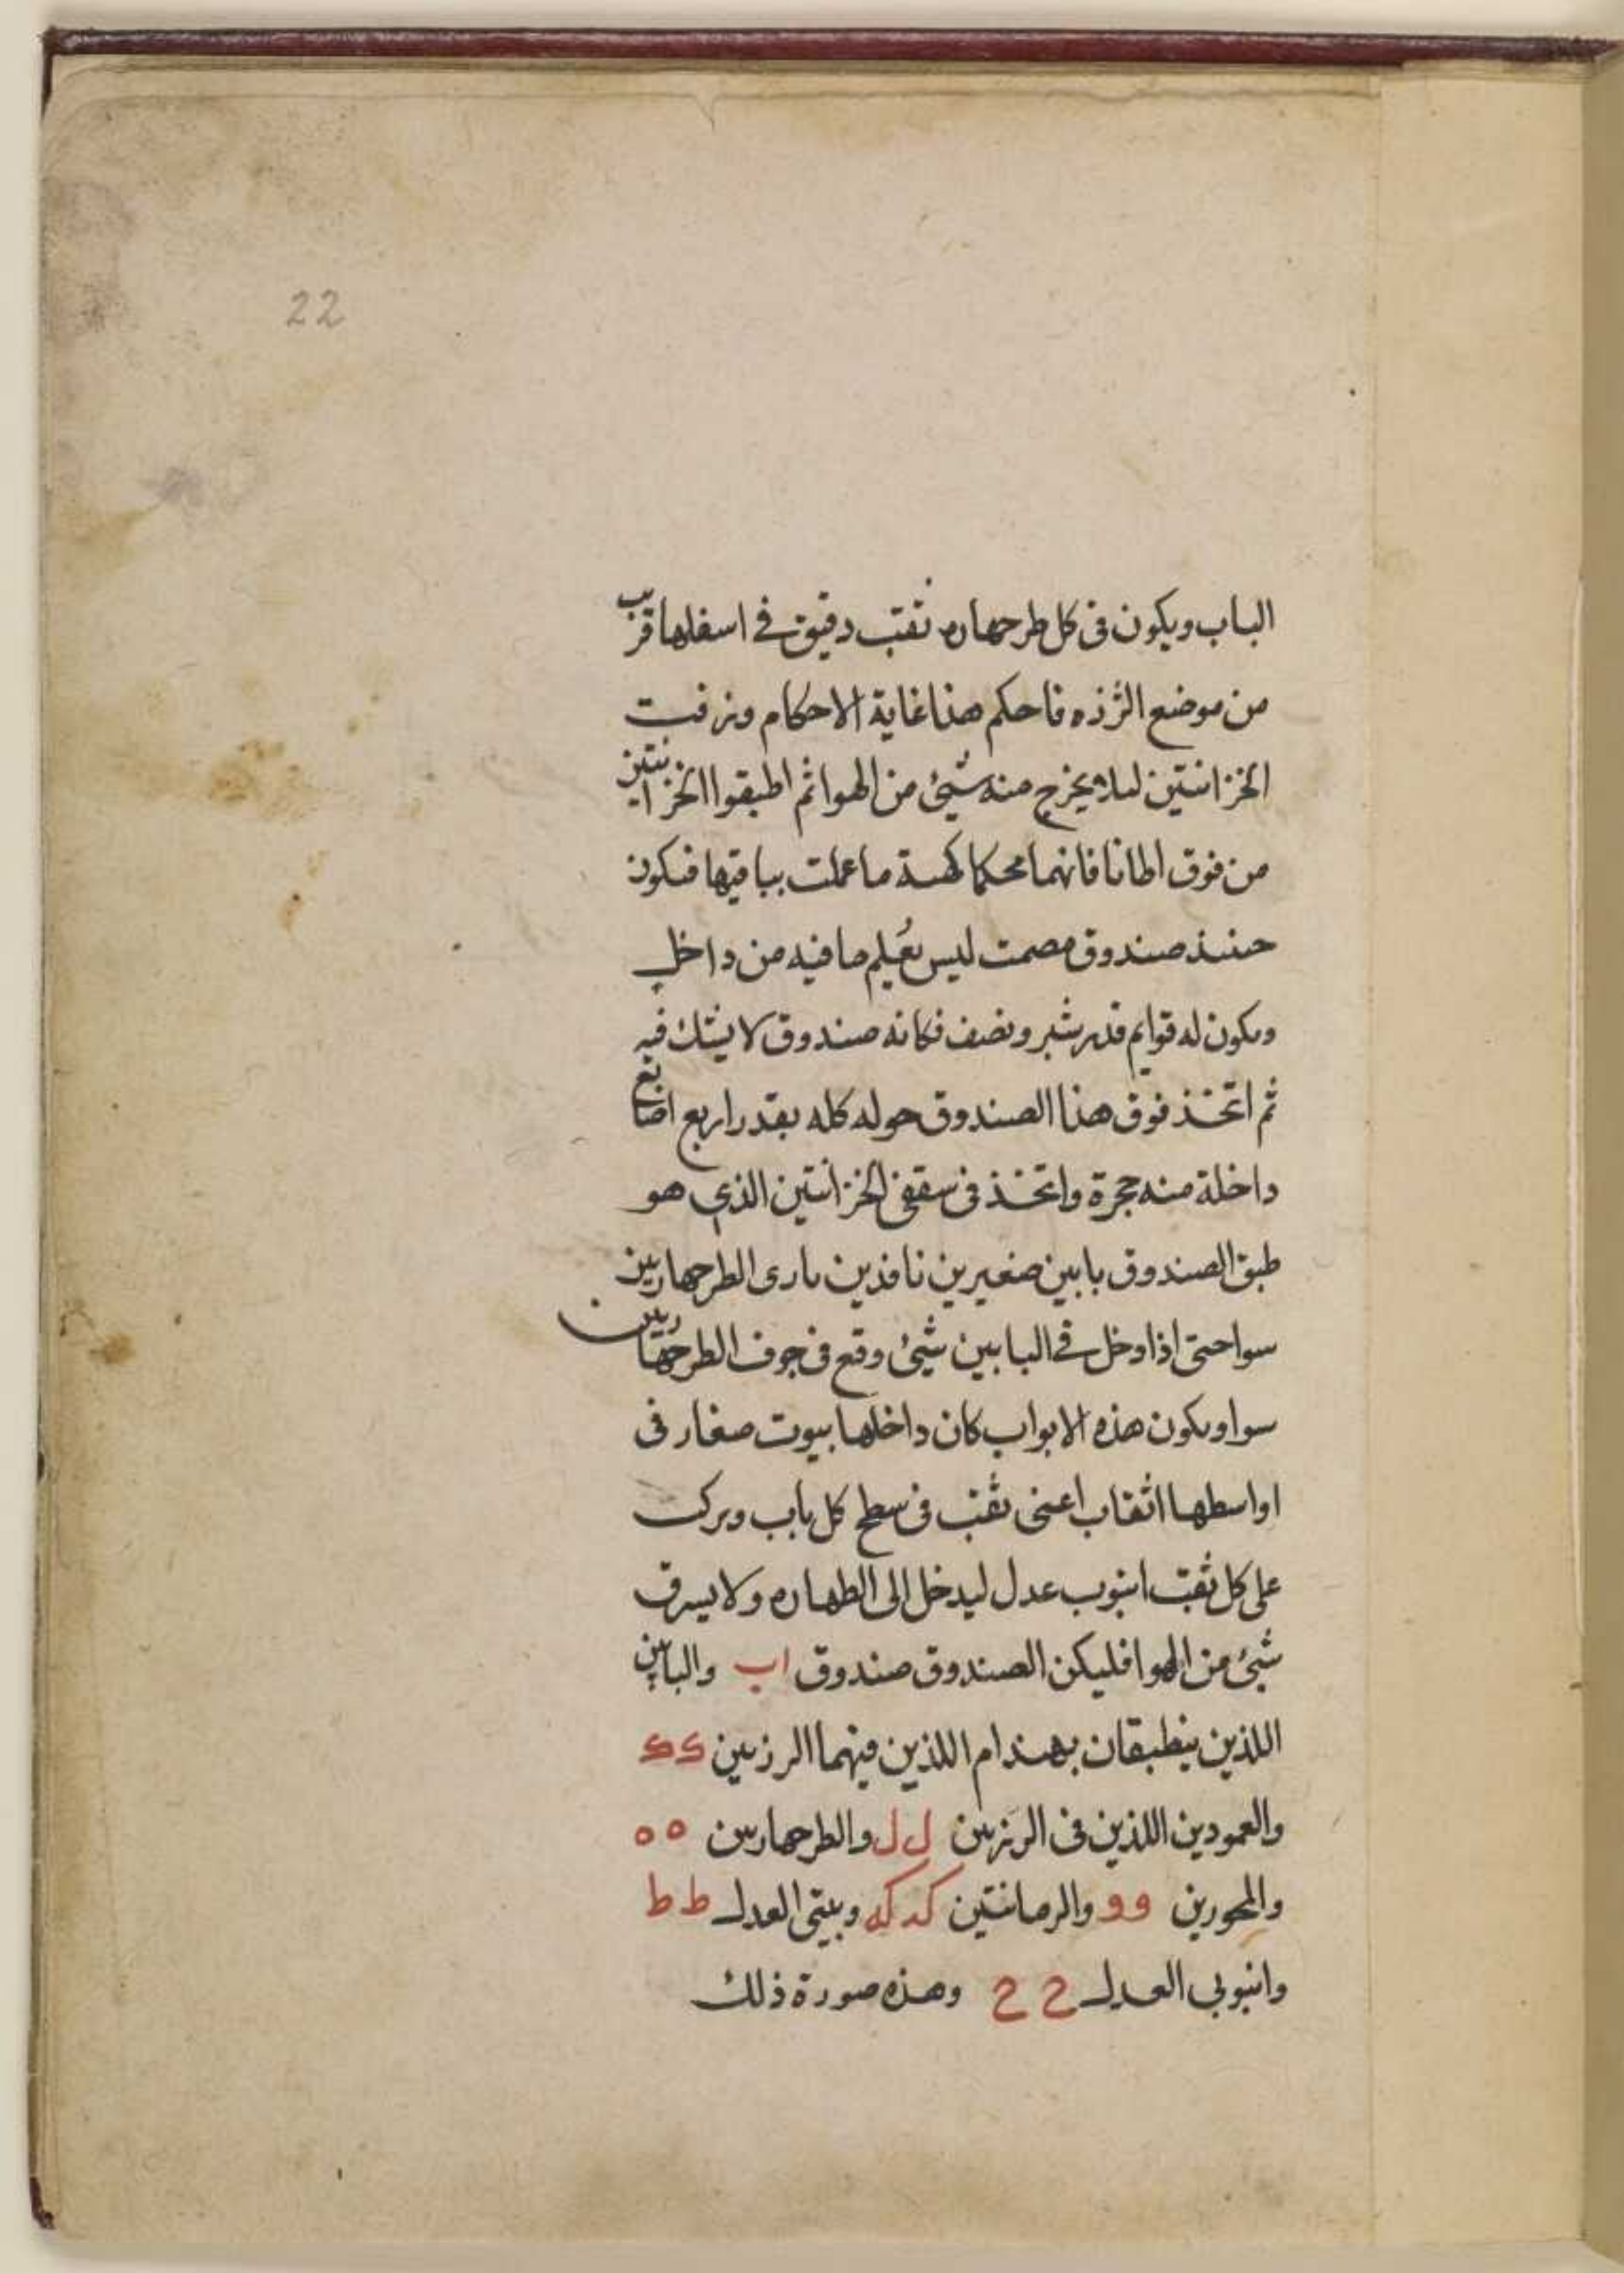 22
الباب ويكون في كل طرجهاره ثقب دقيق في اسفلها قريب
من موضع الرزه فاحكم هذا غاية الاحكام وزفت
الخزانتين ليلا يخرج منه شيئ من الهوا ثم اطبقوا الخزانتين
من فوق اطباقا محكما ما عملت بباقيها فيكون
حينئذ صندوق مصمت ليس يعلم ما فيه من داخل
ويكون له قوايم قدر شبر ونصف فكانه صندوق لا يشك فيه
ثم اتخذ فوق هذا الصندوق حوله كله بقدر اربع اصابع
داخلة منه حجرة واتخذ في سقفي الخزانتين الذي هو
طبق الصندوق بابين صغيرين نافذين بازى الطرجهارين
سوا حتى اذا دخل في البابين شيئ وقع في جوف الطرجهارين
سوا ويكون هذه الابواب كان داخلها بيوت صغار في
اواسطها اثقاب اعنى ثقب في سطح كل باب ويركب
على كل ثقب انبوب عدل ليدخل الى الطهاره ولا يسرق
شيئ من الهوا فليكن الصندوق صندوق اب والبابين
اللذين ينطبقان بهندام اللذين فيهما الرزتين ك ك
والعمودين اللذين في الرزتين ل ل والطرجهارين ه ه
والمحورين و و والرمانتين كد كه وبيتي العدل ط ط
وانبوبي العدل ح ح وهذه صورة ذلك